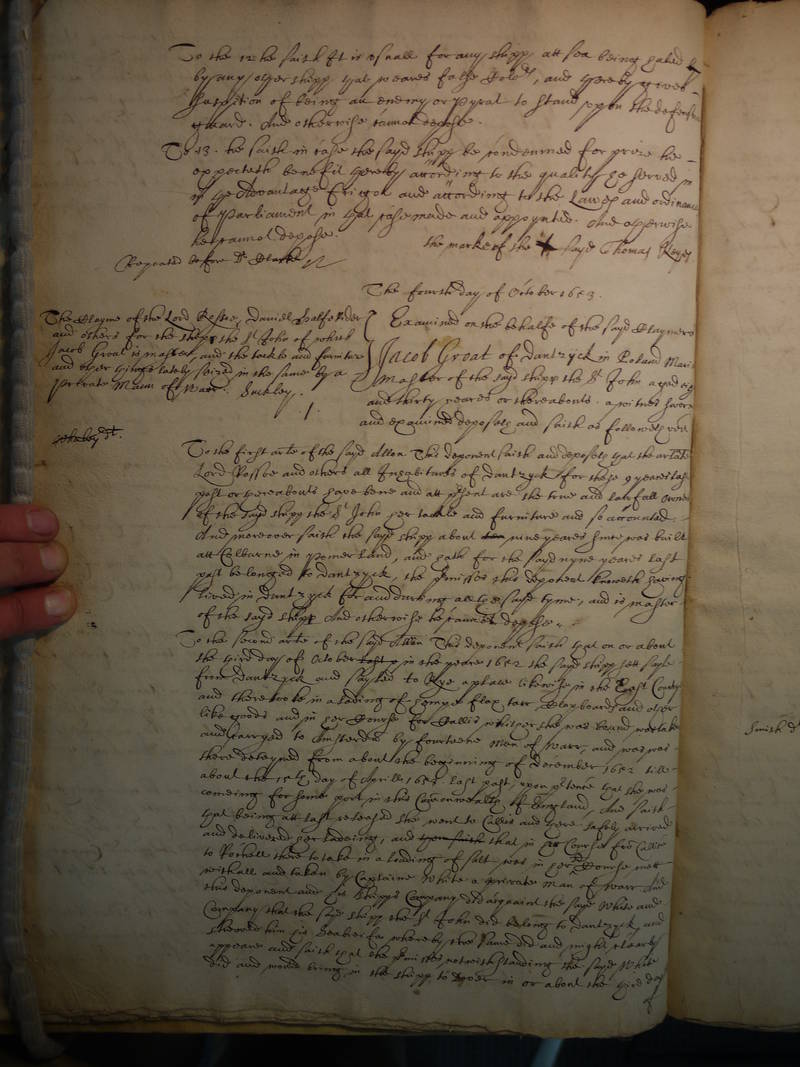 To the 12 he saith It is usuall for any shipp att sea being haled
by any other shipp that weares false Colours, and thereby gives
suspition of being an enemy or Pyrat to stand upon the defensive
guard. And otherwise cannot depose.
To 13. he saith in case the sayd shipp be condemned for prize he
expecteth benefit thereby according to the quality he served in
in the Advantage Friggot and according to the Lawes and ordinance
of Parliament in that case made and appoynted. And otherwise
hee cannot depose.
the marke of the sayd Thomas Keyes
Repeated before Dr Clarke
The fourth day of October 1653.
The Clayme of the Lord Rosse, Daniel
and others for the shipp the St John of which
Jacob Groat is master, and the tackle and furniture
and other things lately seized in the same by a
private Man of Warr. Suckley.
Examined on the behalfe of the sayd Claymers
Jacob Groat of Dantzyck in Poland Mari
Master of the sayd shipp the St John aged
and thirty yeares or thereabouts a witnes sworne
and examined deposeth and saith as followeth vizt
1.
To the first arte of the sayd Allon This deponent saith and deposeth that the arlate
Lord Rosse and others all Inhabitants of Dantzyck for these 9 yeares last
past or thereabouts have bene and att present are the true and lawfull Owners
of the sayd shipp the St John her tackle and furniture and so accounted
And moreover saith the sayd shipp about nine yeares since was built
att Colbarne in Pomerland, and hath for the sayd nyne yeares last
past belonged to Dantzyck, the premisses this deponent knoweth having
lived in Dantzyck for and during all the sayd tyme, and is master
of the sayd shipp And otherwise he cannot depose.
To the second arte of the sayd Allon This deponent saith that on or about
the third day of October last p in the yeare 1652 the sayd shipp sett sayle
from Dantzyck and sayled to Rye a place likewise in the East Country
and there tooke in a lading of hempe flax tarr Clapboards and other
like goods and in her Course for Callis whither she was bound was taken
and carryed to Amsterdam by fourteene Men of Warr, and was
there deteyned from about the beginning of December 1652 till
about the 15th day of Aprill 1653 last past, upon p'tence that she was
comeing for some port in this Commonwealth of England, And saith
that being att last released she went to Callis and there safely arrived
and delivered her ladeing, and then saith that in her Course from Callis
to Rochell there to take in a lading of salt was in her Course mett
withall and taken by Captaine White a private Man of Warr And
this deponent and his shipps Company did acquaint the sayd White and
Company that the sayd shipp the St John did belong to Dantzyck and
shewed him his Seabriefes whereby the same did and might clearly
appeare and saith that the premisses notwithstanding the sayd White
did and would bring in the shipp to Dover in or about the third day
of
Smith dt